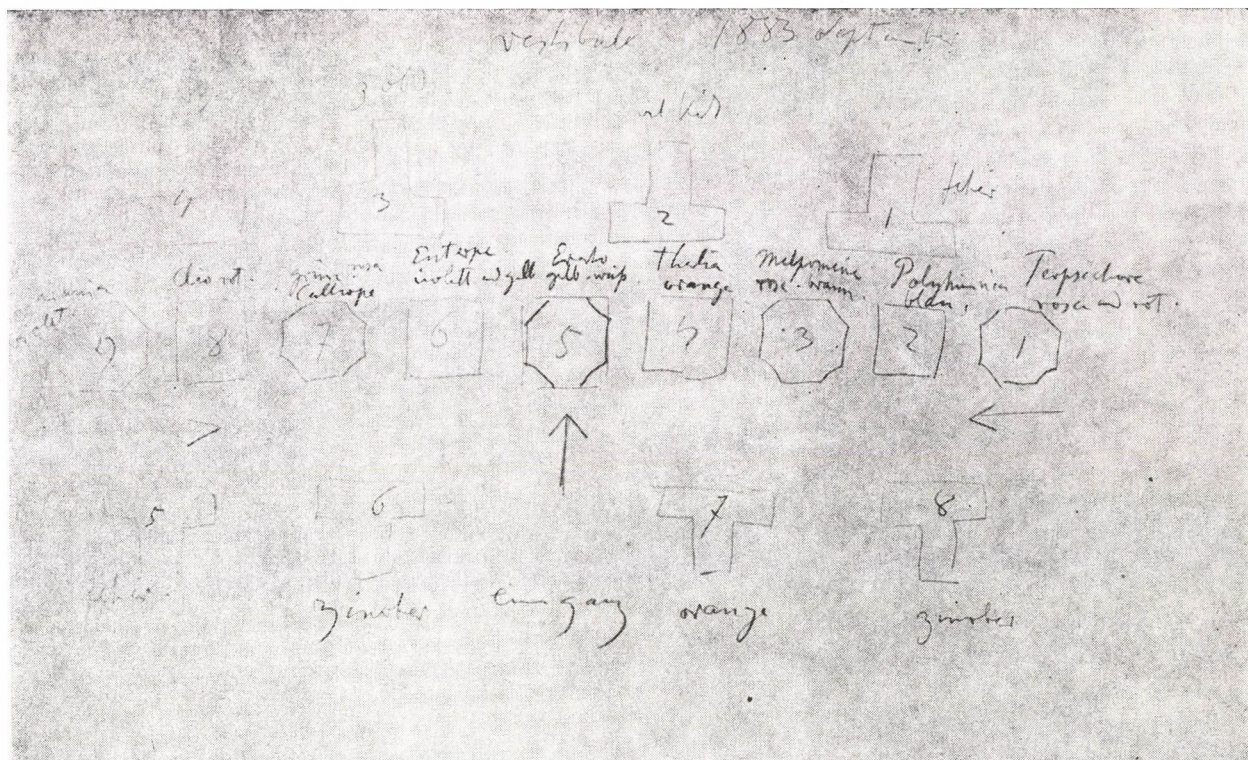 vestibule 1883 September
4
3
2
1 fehér
Clio rot.
grün rosa
Kalliope
Euterpe
violett und gelb
Erato
gelb-weiß.
Thalia
orange
Melpomine
rose-braun.
Polyhimnia
blau,
Terpsichore
rosa und rot.
9
8
7
6
5
4
3
2
1
5
6
7
8
zinober
Eingang
orange
zinober